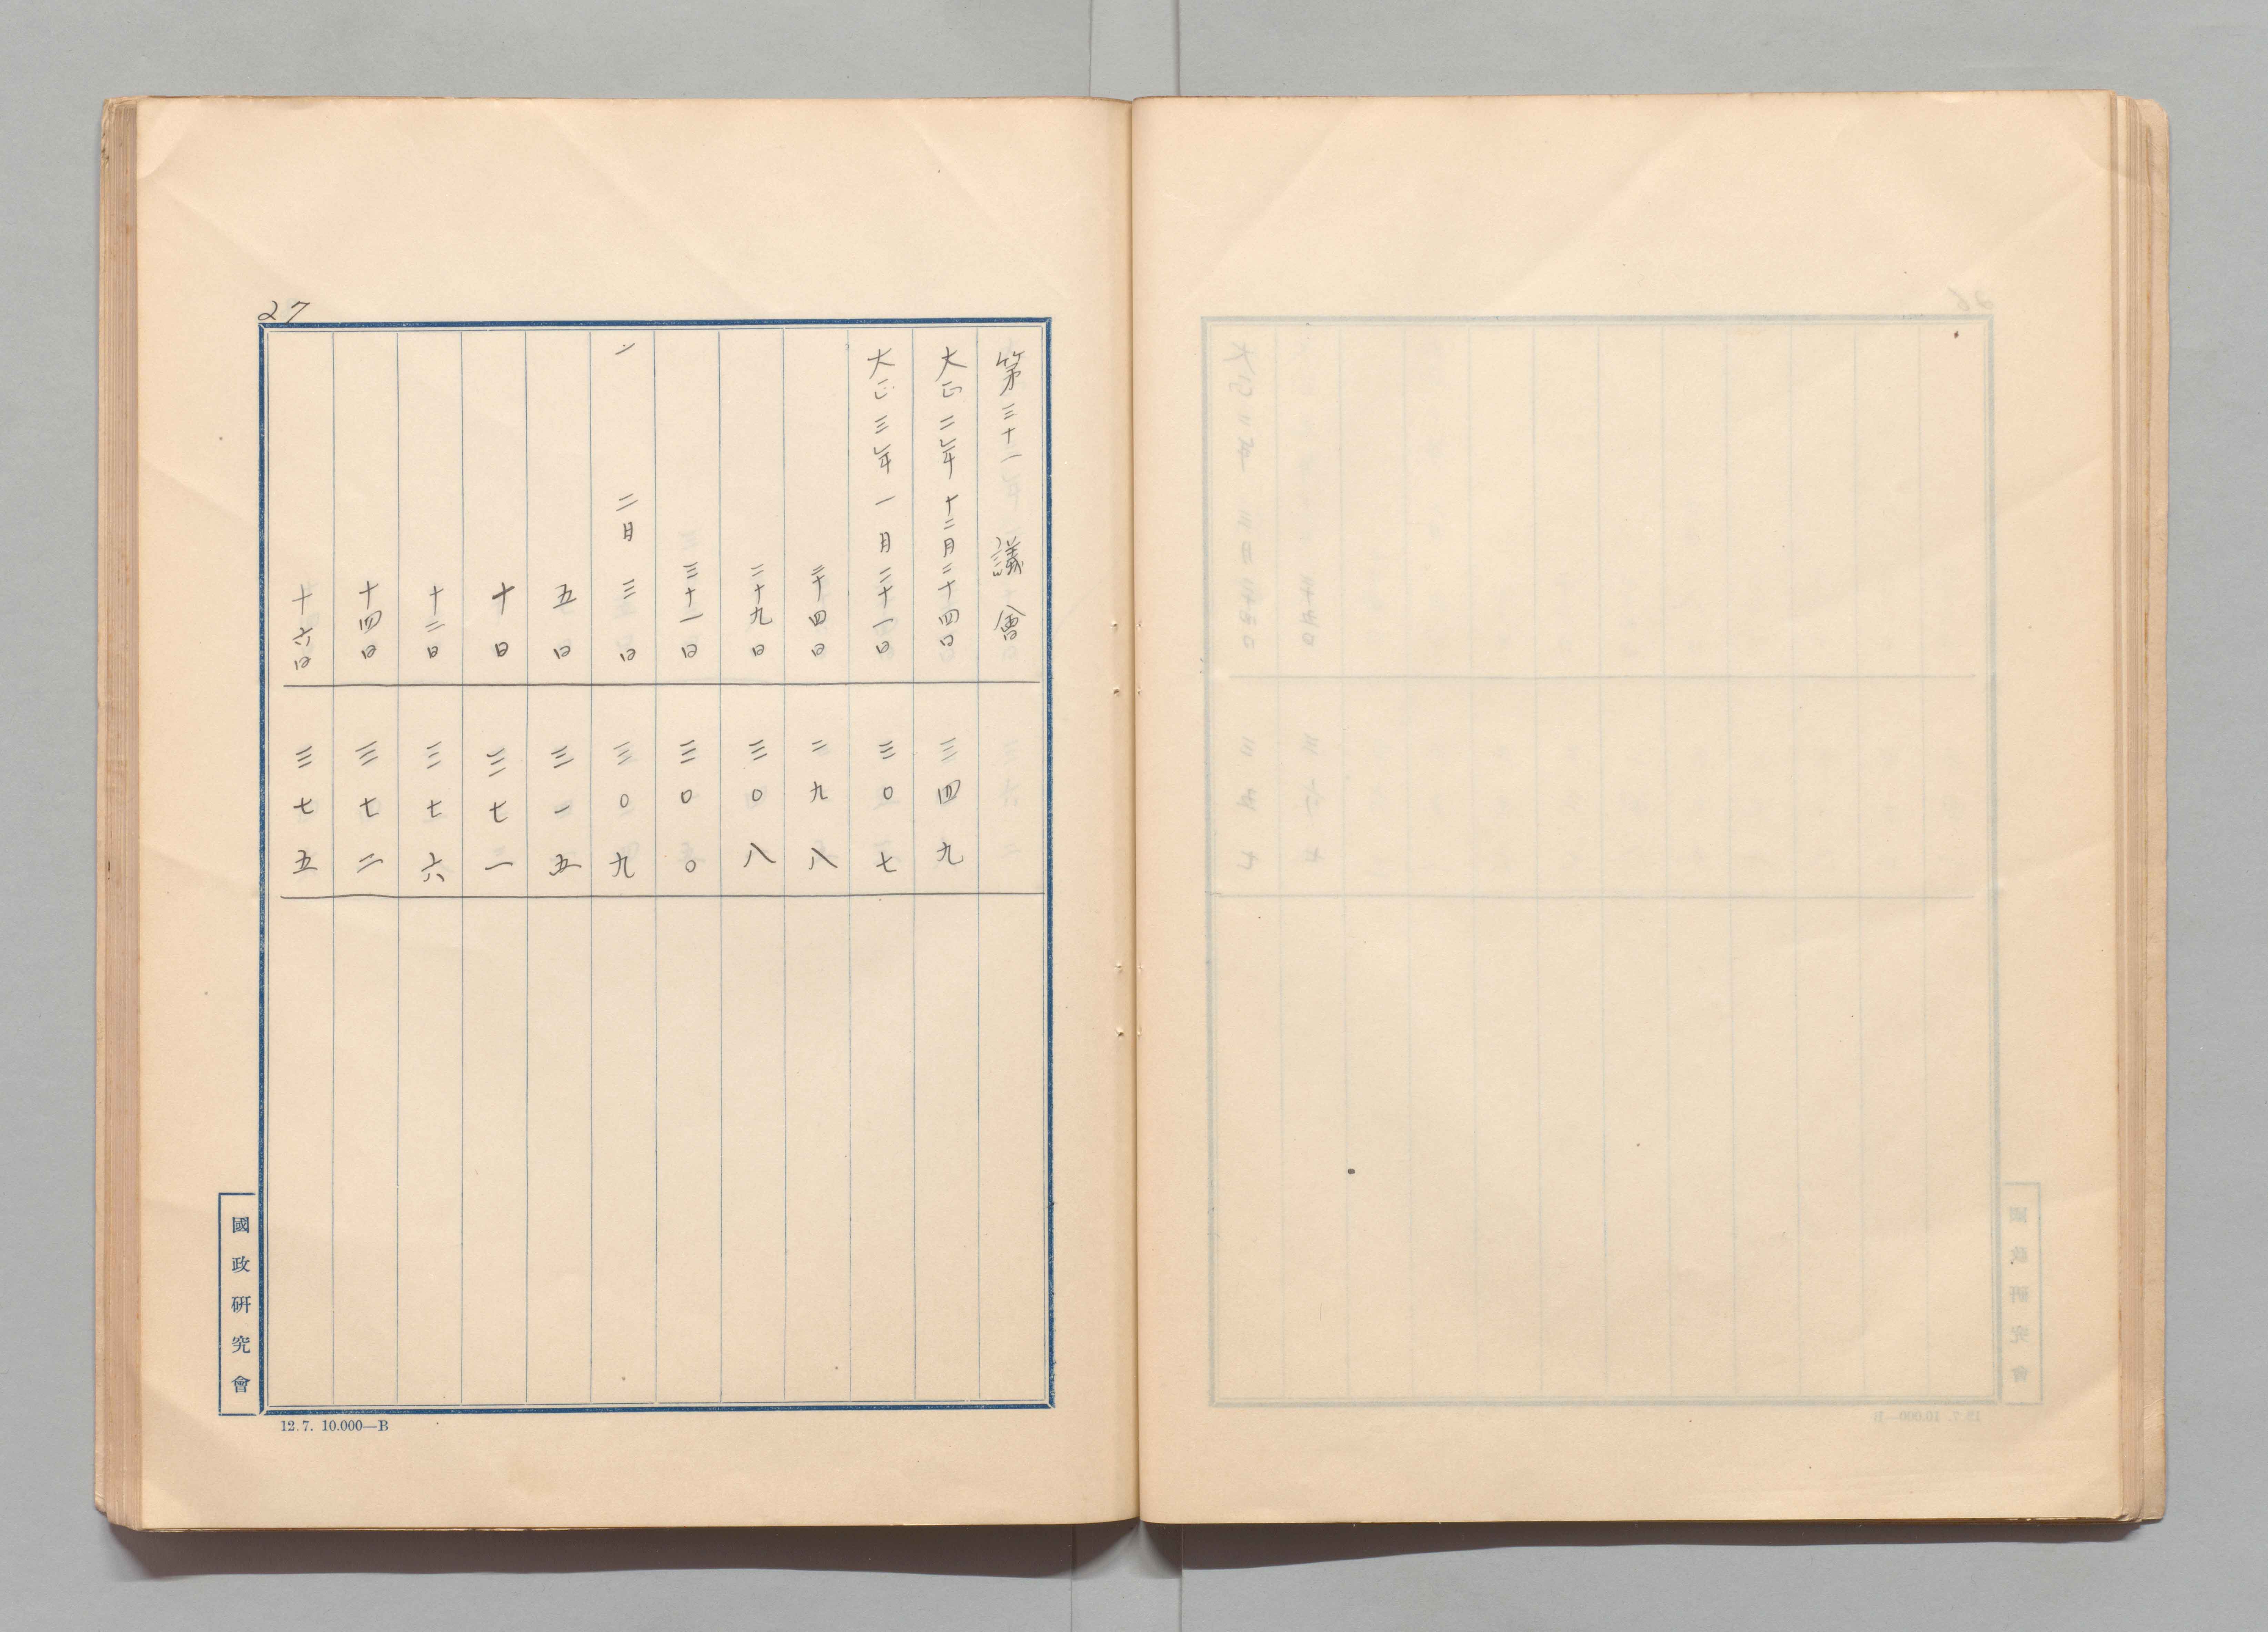 27
第三十一議會
大正二年十二月二十四日 三四九
大正三年一月二十一日 三〇七
二十四日 二九八
二十九日 三〇八
三十一日 三〇〇
〃 二月三日 三〇九
五日 三一五
十日 三七一
十二日 三七六
十四日 三七二
十六日 三七五
國政研究會
12.7. 10.000—B